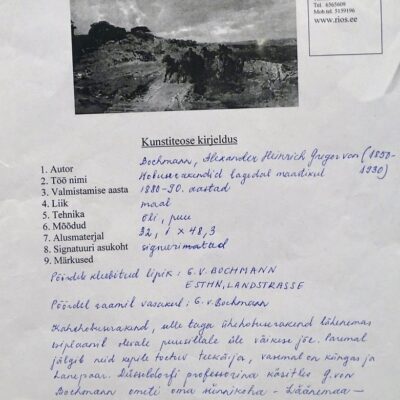 Tel 6565609
Mob.tel. 5159196
www.rios.ee
Kunstiteose kirjeldus
1. Autor Bochmann, Alexander Heinrich Gregor von (1850-1930)
2. Töö nimi Hobuserakendid lagedal maastikul
3. Valmistamise aasta 1880-90. aastad
4. Liik maal
5. Tehnika õli, puu
6. Mõõdud 32,1 x 48,3
7. Alusmaterjal
8. Signatuuri asukoht signeerimatad
9. Märkused
Pöördele kleebitud lipik: G.V. BOCHMANN
ESTHN, LANDSTRASSE
Pöördel raamil vasakul: G.v. Bochmann
Kahehobuserakend, selle taga ühehobuserakend lähenemas
esiplaanil olevale puusillale üle väikese jõe. Paremal
jälgib neid kepile toetuv teekäija, vasemal on küngas ja
lambapaar. Düsseldorfi professorina käsitles G. von
Bochmann ometi oma sünnikoha - Läänemaa -